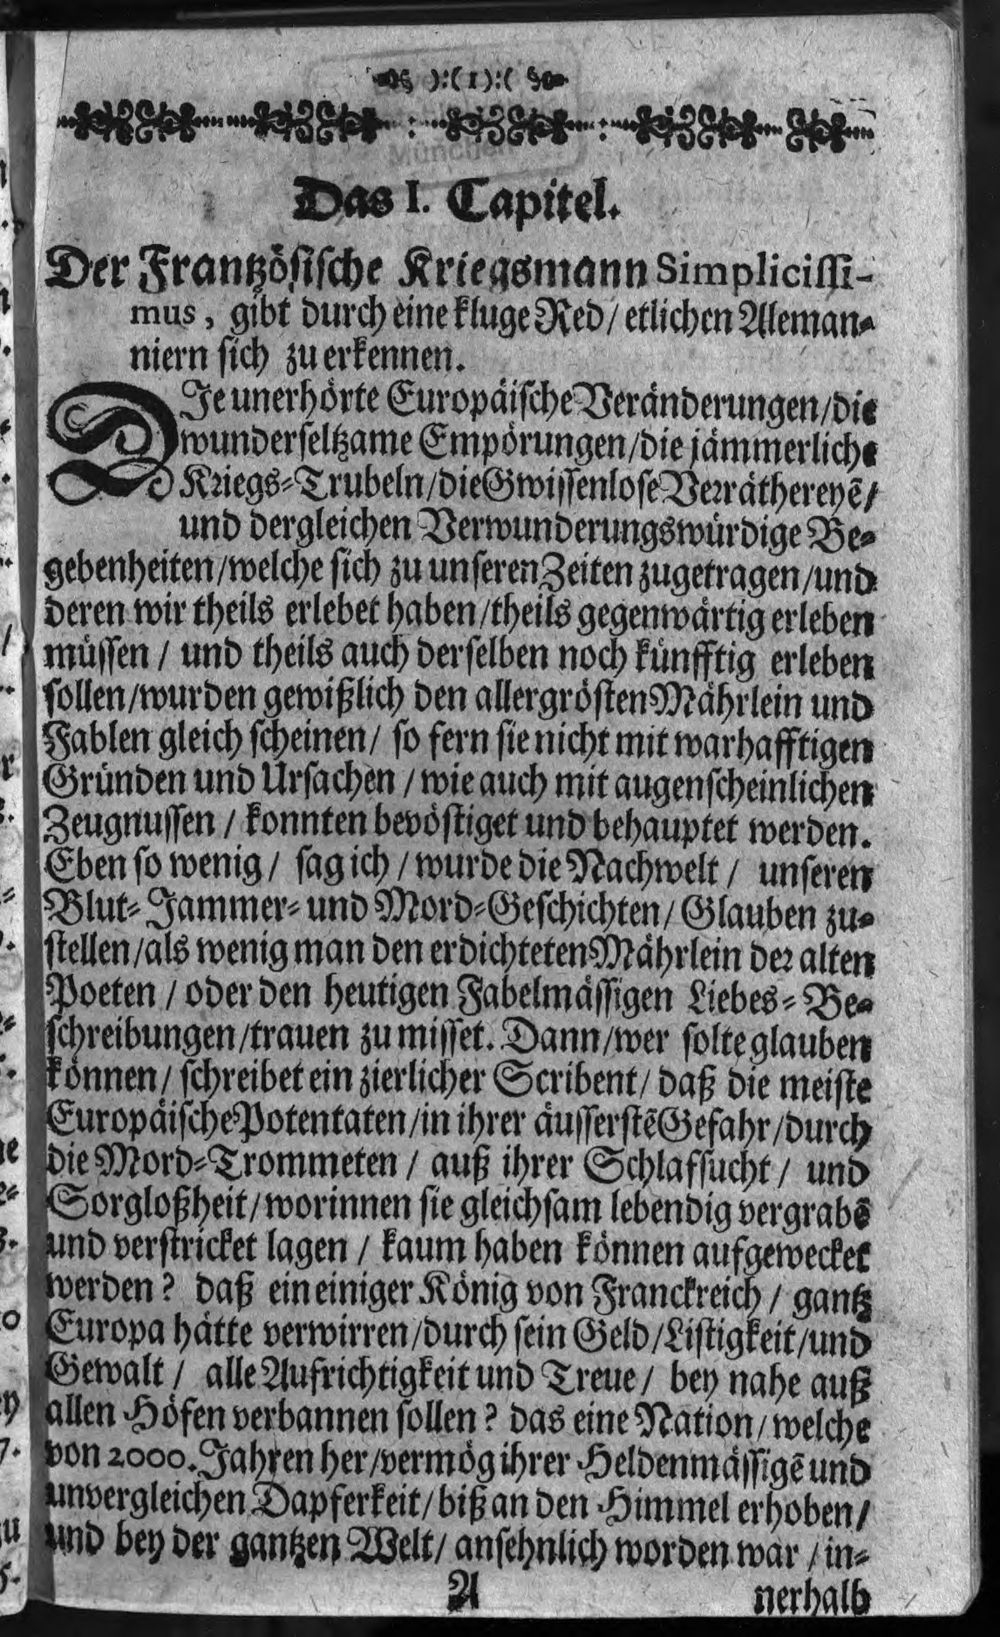 ):( 1 ):(
München
Das I. Capitel.
Der Frantzösische Kriegsmann Simplicissi-
mus, gibt durch eine kluge Red/ etlichen Aleman-
niern sich zu erkennen.
DIe unerhörte Europäische Veränderungen/die
wunderseltzame Empörungen/die jämmerliche
Kriegs-Trubeln/die Gwissenlose Verräthereyē/
und dergleichen Verwunderungswürdige Be-
gebenheiten/welche sich zu unseren Zeiten zugetragen/und
deren wir theils erlebet haben/theils gegenwärtig erleben
müssen / und theils auch derselben noch künfftig erleben
sollen/wurden gewißlich den allergrösten Mährlein und
Fablen gleich scheinen/ so fern sie nicht mit warhafftigen
Gründen und Ursachen / wie auch mit augenscheinlichen
Zeugnussen / konnten bevöstiget und behauptet werden.
Eben so wenig/ sag ich / wurde die Nachwelt / unseren
Blut- Jammer- und Mord-Geschichten/ Glauben zu-
stellen/als wenig man den erdichteten Mährlein der alten
Poeten / oder den heutigen Fabelmässigen Liebes-Be-
schreibungen/trauen zu misset. Dann/wer solte glauben
können/ schreibet ein zierlicher Scribent/ daß die meiste
Europäische Potentaten/in ihrer äusserstē Gefahr/durch
die Mord-Trommeten / auß ihrer Schlafsucht / und
Sorgloßheit/worinnen sie gleichsam lebendig vergrabē
und verstricket lagen / kaum haben können aufgewecket
werden? daß ein einiger König von Franckreich / gantz
Europa hätte verwirren/durch sein Geld/Listigkeit/und
Gewalt / alle Aufrichtigkeit und Treue / bey nahe auß
allen Höfen verbannen sollen? das eine Nation/welche
von 2000. Jahren her/vermög ihrer Heldenmässigē und
unvergleichen Dapferkeit/biß an den Himmel erhoben/
und bey der gantzen Welt/ ansehnlich worden war / in-
A nerhalb